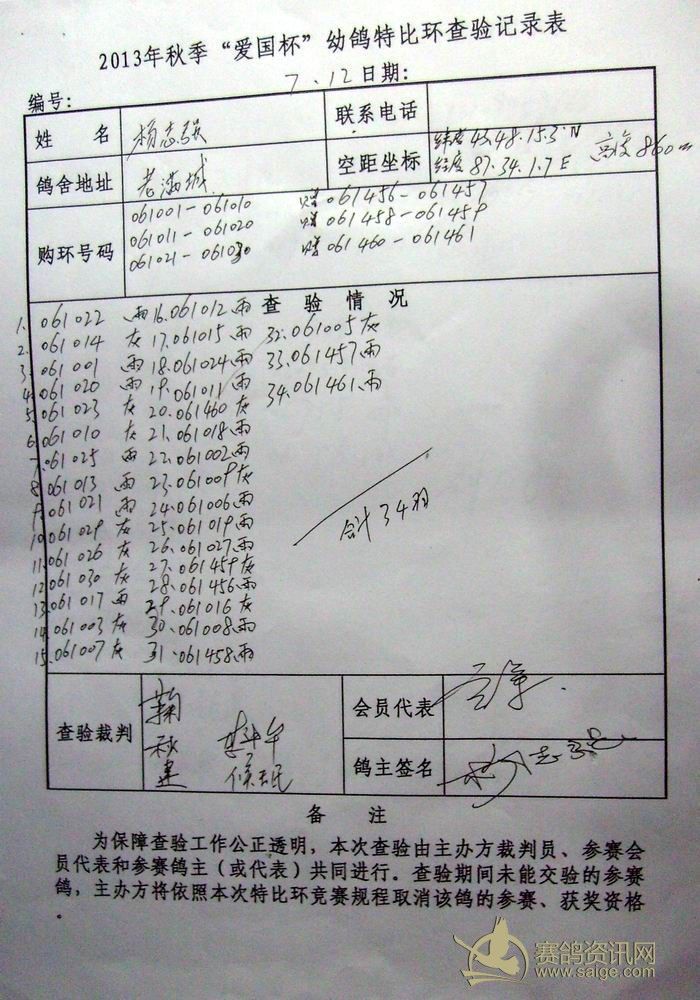 2013年秋季“爱国杯”幼鸽特比环查验记录表
编号： 7.12日期：
姓 名 杨志强 联系电话
鸽舍地址 老满城 空距坐标 纬度43.48.15.3 N
经度87.34.1.7 E 高度860m
购环号码 061001-061010 赠061456-061457
061011-061020 赠061458-061459
061021-061030 赠061460-061461
查 验 情 况
1. 061022 雨 16.061012雨
2. 061014 灰 17.061015雨 32.061005灰
3. 061001 雨 18.061024雨 33.061457雨
4. 061020 雨 19.061011雨 34.061461雨
5. 061023 灰 20.061460灰
6. 061010 灰 21.061018雨
7. 061025 雨 22.061002雨
8. 061013 雨 23.061009灰
9. 061021 雨 24.061006雨
10. 061029 灰 25.061019雨
11. 061026 灰 26.061027雨
12. 061030 灰 27.061459灰
13. 061017 雨 28.061456雨
14. 061003 灰 29.061016灰
15. 061007 灰 30.061008雨
31.061458雨
合计34羽
查验裁判 鞠秋建
会员代表
鸽主签名 杨志强
备 注
为保障查验工作公正透明，本次查验由主办方裁判员、参赛会
员代表和参赛鸽主（或代表）共同进行。查验期间未能交验的参赛
鸽，主办方将依照本次特比环竞赛规程取消该鸽的参赛、获奖资格
。
赛鸽资讯网
www.saige.com